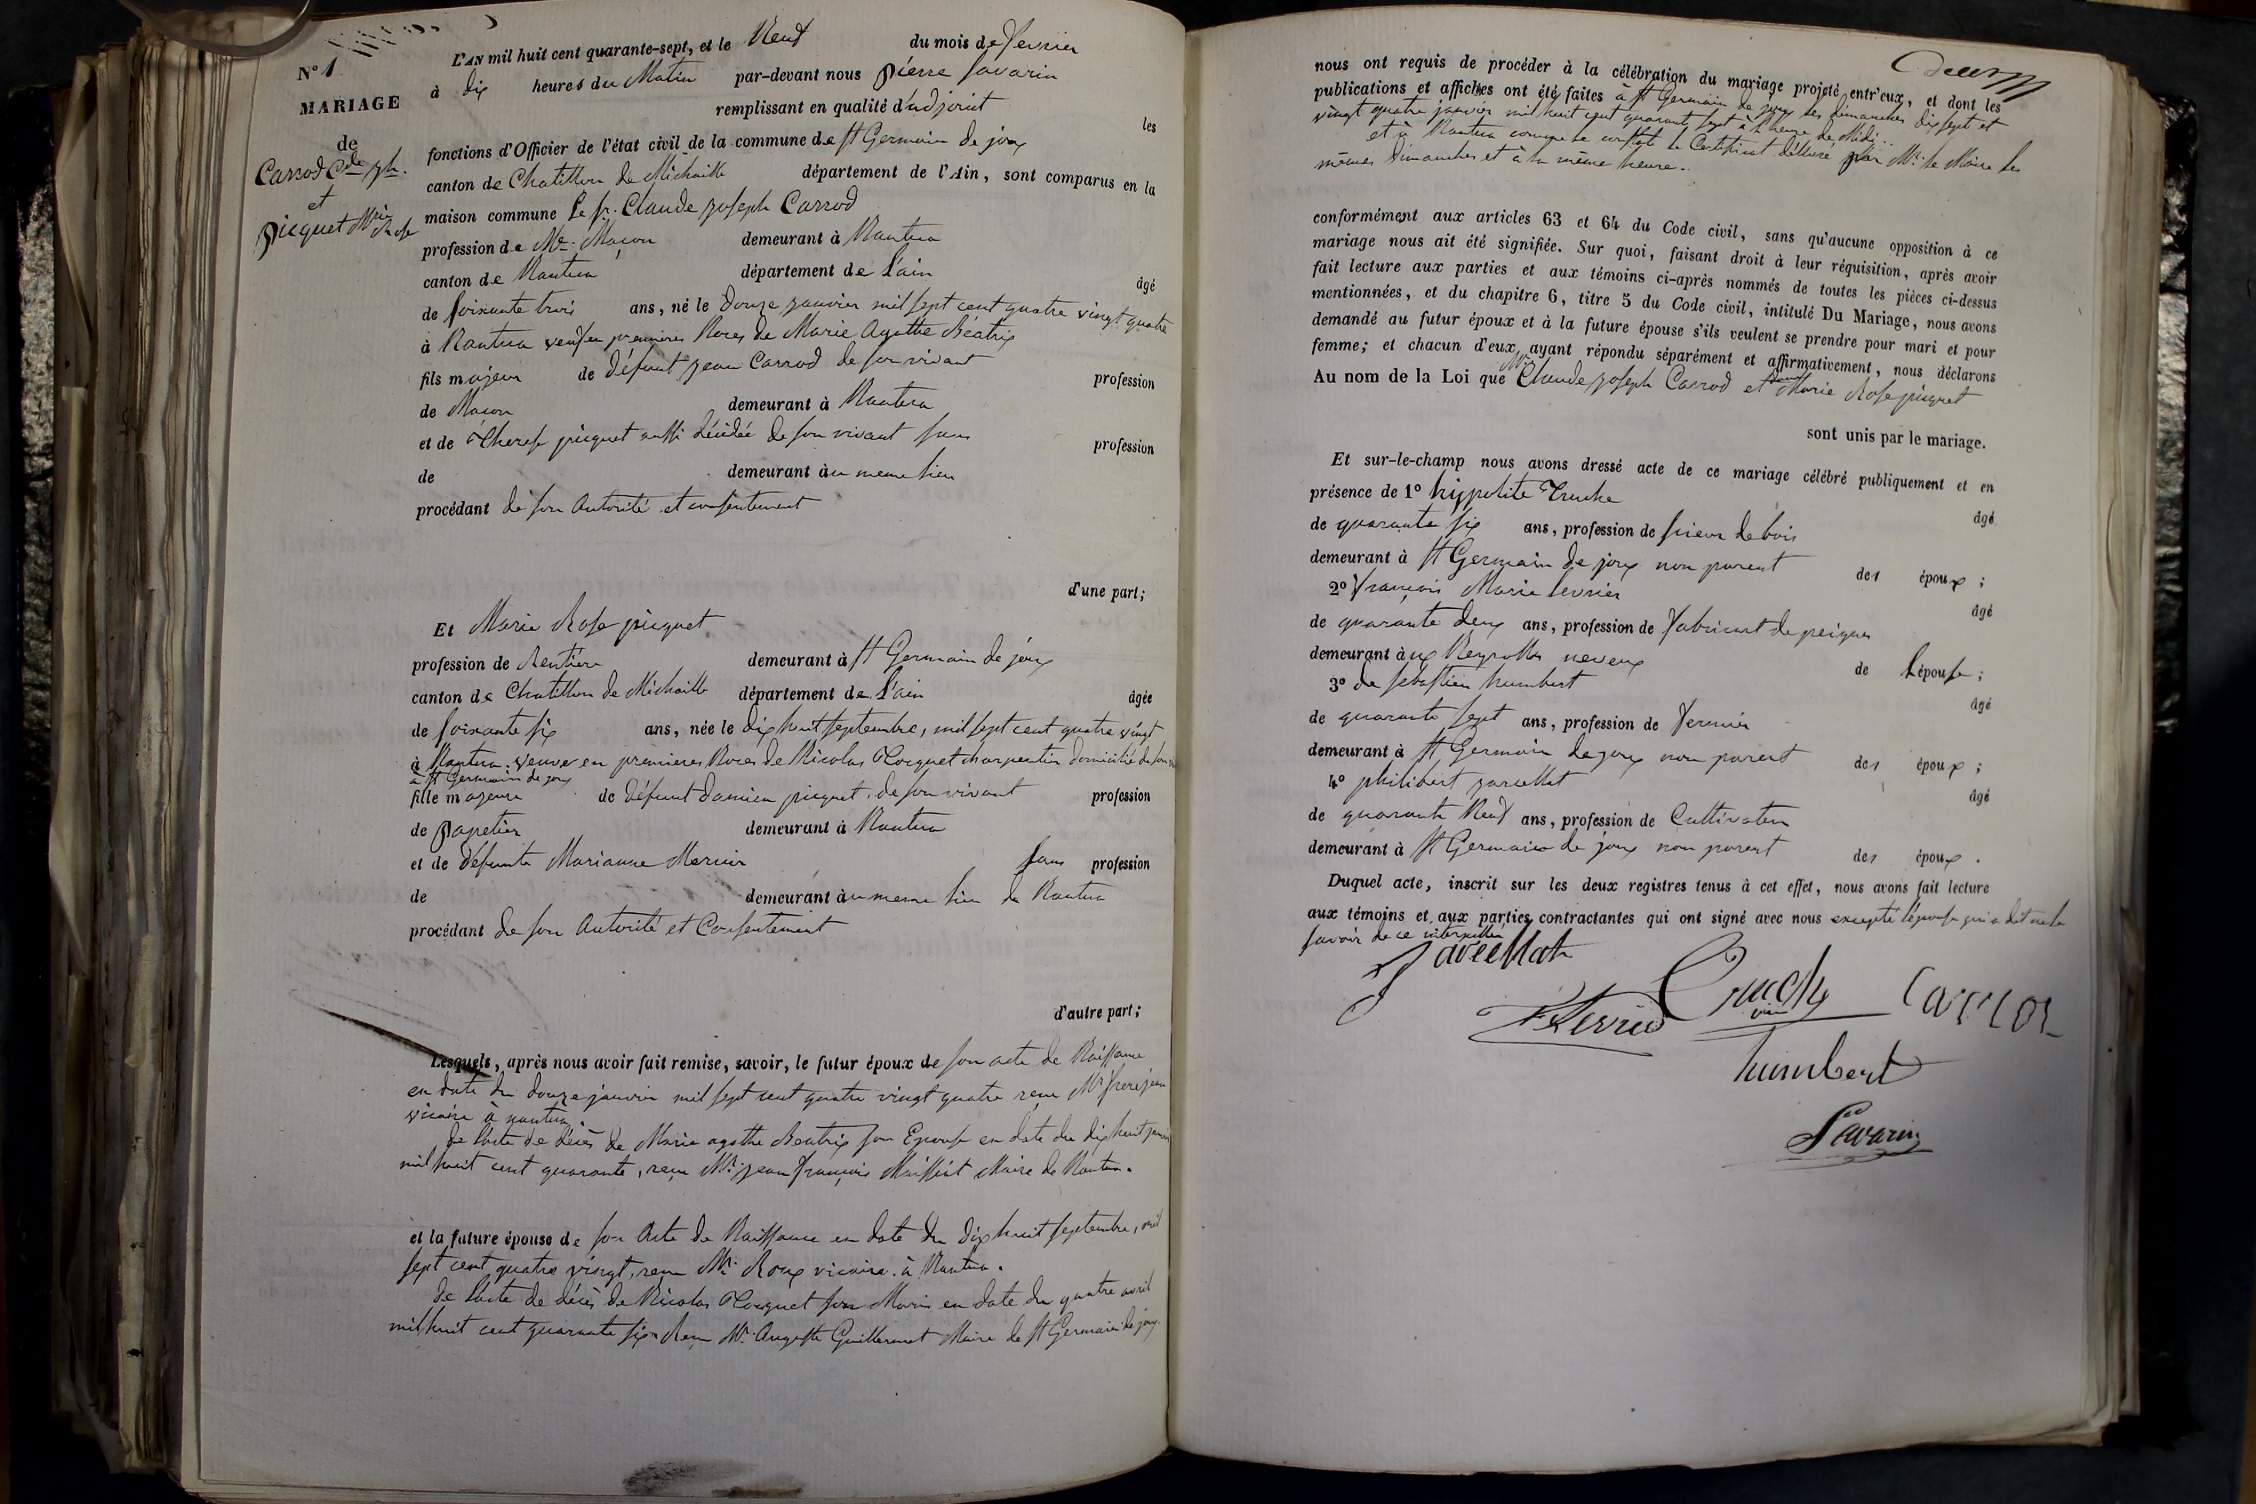 N° 1
MARIAGE
de
Carrod Cde Jph.
et
picquet Mrie Rose
L'AN mil huit cent quarante-sept, et le Neuf du mois de fevrier
à dix heures du Matin par-devant nous pierre Savarin
remplissant en qualité d'adjoint les
fonctions d'Officier de l'état civil de la commune de St Germain de joux
canton de Chatillon de Michaille département de l'Ain, sont comparus en la
maison commune Le sr. Claude joseph Carrod
profession de Me. Maçon demeurant à Nantua
canton de Nantua département de l'ain âgé
de soixante trois ans, né le douze janvier mil sept cent quatre vingt quatre
à Nantua veuf en premieres Noces de Marie Agathe Béatrix
fils majeur de défunt jean Carrod de son vivant profession
de Maçon demeurant à Nantua
et de Therese picquet aussi décédée de son vivant sans profession
de demeurant au meme lieu
procédant de son autorité et consentement
d'une part;
Et Marie Rose picquet
profession de Rentiere demeurant à St Germain de joux
canton de Chatillon de Michaille département de l'ain âgée
de soixante six ans, née le dix huit septembre, mil sept cent quatre vingt
à Nantua. veuve en premieres Noces de Nicolas Cocquet charpentier domicilié de son
à St Germain de joux
fille majeure de défunt damien picquet. de son vivant profession
de papetier demeurant à Nantua
et de défunte Marianne Mercier sans profession
de demeurant au meme lieu de Nantua
procédant de son autorité et Consentement
d'autre part;
Lesquels, après nous avoir fait remise, savoir, le futur époux de son acte de Naissance
en date du douze janvier mil sept cent quatre vingt quatre reçu Mr frere jean
vicaire à nantua.
de l'acte de décès de Marie agathe Beatrix son Epouse en date du dix huit janvier
mil huit cent quarante, reçu Mr. jean françois Maissiat Maire de Nantua.
et la future épouse de son Acte de Naissance en date du dix huit septembre, mil
sept cent quatre vingt, reçu Mr. Roux vicaire à Nantua.
de l'acte de décès de Nicolas Cocquet son Mari en date du quatre avril
mil huit cent quarante six. Reçu Mr. Auguste Guillermet Maire de St Germain de joux.
deux
nous ont requis de procéder à la célébration du mariage projeté entr'eux, et dont les
publications et affiches ont été faites à St Germain de joux les dimanches dix sept et
vingt quatre janvier mil huit cent quarante sept à l'heure de Midi.
et à Nantua comme le constate le Certificat délivré par Mr. le Maire les
mêmes dimanches et à la même heure.
conformément aux articles 63 et 64 du Code civil, sans qu'aucune opposition à ce
mariage nous ait été signifiée. Sur quoi, faisant droit à leur réquisition, après avoir
fait lecture aux parties et aux témoins ci-après nommés de toutes les pièces ci-dessus
mentionnées, et du chapitre 6, titre 5 du Code civil, intitulé Du Mariage, nous avons
demandé au futur époux et à la future épouse s'ils veulent se prendre pour mari et pour
femme; et chacun d'eux ayant répondu séparément et affirmativement, nous déclarons
Au nom de la Loi que Mr Claude joseph Carrod et Marie Rose picquet
sont unis par le mariage.
Et sur-le-champ nous avons dressé acte de ce mariage célébré publiquement et en
présence de 1° hippolite Truche âgé
de quarante six ans, profession de scieur de bois
demeurant à St Germain de joux non parent des époux;
2° françois Marie Servier âgé
de quarante deux ans, profession de fabricant de peignes
demeurant aux Neyrolles neveux de l'épouse;
3° de sebastien humbert âgé
de quarante sept ans, profession de fermier
demeurant à St Germain de joux non parent des époux;
4° philibert javellot âgé
de quarante Neuf ans, profession de Cultivateur
demeurant à St Germain de joux non parent des époux.
Duquel acte, inscrit sur les deux registres tenus à cet effet, nous avons fait lecture
aux témoins et aux parties contractantes qui ont signé avec nous excepté l'épouse qui a dit ne le
savoir de ce interpellée
Javellot
Truche
Carrod
humbert
Savarin